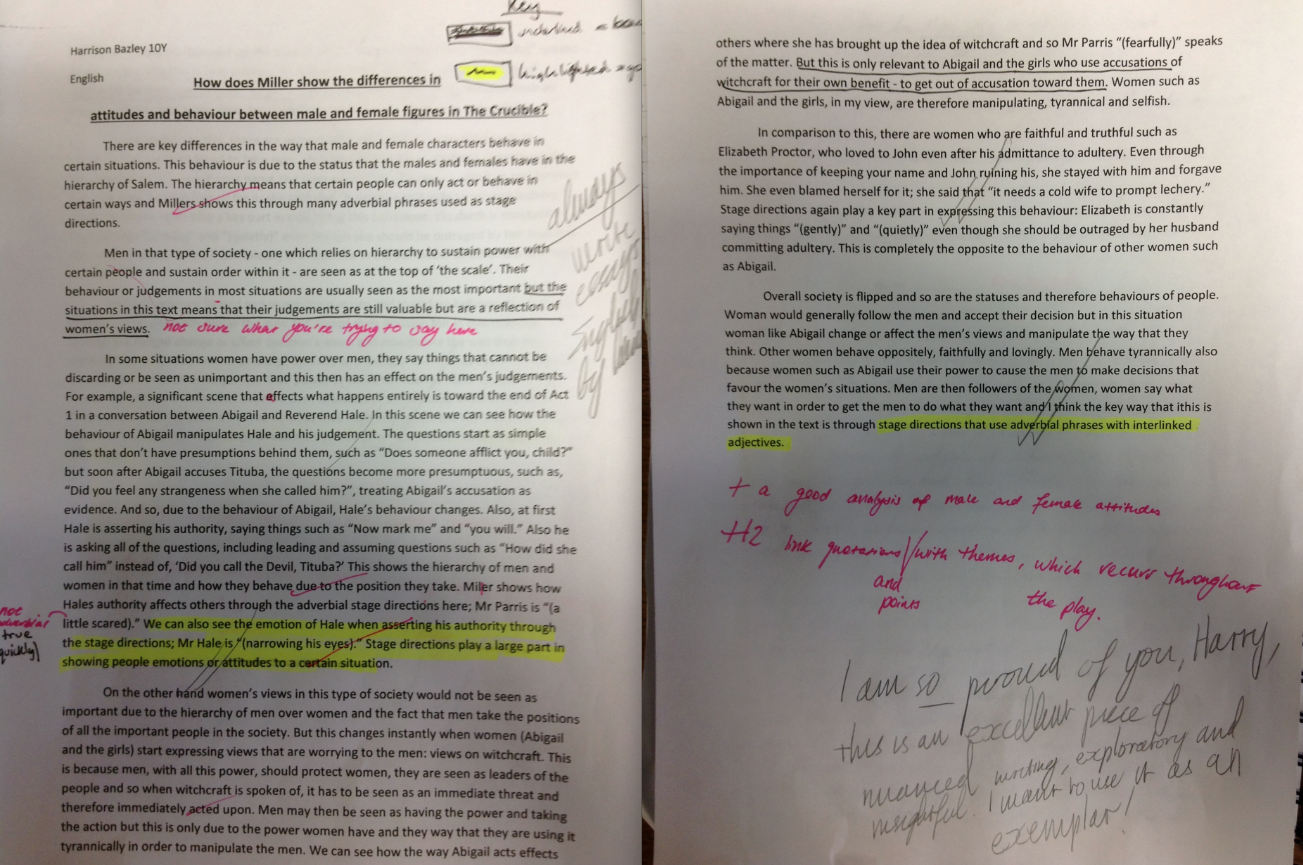 Key
underlined =
highlighted =
Harrison Bazley 10Y
English
How does Miller show the differences in
attitudes and behaviour between male and female figures in The Crucible?
There are key differences in the way that male and female characters behave in
certain situations. This behaviour is due to the status that the males and females have in the
hierarchy of Salem. The hierarchy means that certain people can only act or behave in
certain ways and Millers shows this through many adverbial phrases used as stage
directions.
always
write
essays
by
Men in that type of society - one which relies on hierarchy to sustain power with
certain people and sustain order within it - are seen as at the top of 'the scale'. Their
behaviour or judgements in most situations are usually seen as the most important but the
situations in this text means that their judgements are still valuable but are a reflection of
women's views. not sure what you're trying to say here
In some situations women have power over men, they say things that cannot be
discarding or be seen as unimportant and this then has an effect on the men's judgements.
For example, a significant scene that effects what happens entirely is toward the end of Act
1 in a conversation between Abigail and Reverend Hale. In this scene we can see how the
behaviour of Abigail manipulates Hale and his judgement. The questions start as simple
ones that don't have presumptions behind them, such as "Does someone afflict you, child?"
but soon after Abigail accuses Tituba, the questions become more presumptuous, such as,
"Did you feel any strangeness when she called him?", treating Abigail's accusation as
evidence. And so, due to the behaviour of Abigail, Hale's behaviour changes. Also, at first
Hale is asserting his authority, saying things such as "Now mark me" and "you will." Also he
is asking all of the questions, including leading and assuming questions such as "How did she
call him" instead of, 'Did you call the Devil, Tituba?' This shows the hierarchy of men and
women in that time and how they behave due to the position they take. Miler shows how
Hales authority affects others through the adverbial stage directions here; Mr Parris is "(a
little scared)." We can also see the emotion of Hale when asserting his authority through
the stage directions; Mr Hale is "(narrowing his eyes)." Stage directions play a large part in
showing people emotions or attitudes to a certain situation.
not
adverbial
true
quickly)
On the other hand women's views in this type of society would not be seen as
important due to the hierarchy of men over women and the fact that men take the positions
of all the important people in the society. But this changes instantly when women (Abigail
and the girls) start expressing views that are worrying to the men: views on witchcraft. This
is because men, with all this power, should protect women, they are seen as leaders of the
people and so when witchcraft is spoken of, it has to be seen as an immediate threat and
therefore immediately acted upon. Men may then be seen as having the power and taking
the action but this is only due to the power women have and they way that they are using it
tyrannically in order to manipulate the men. We can see how the way Abigail acts effects
others where she has brought up the idea of witchcraft and so Mr Parris "(fearfully)" speaks
of the matter. But this is only relevant to Abigail and the girls who use accusations of
witchcraft for their own benefit - to get out of accusation toward them. Women such as
Abigail and the girls, in my view, are therefore manipulating, tyrannical and selfish.
In comparison to this, there are women who are faithful and truthful such as
Elizabeth Proctor, who loved to John even after his admittance to adultery. Even through
the importance of keeping your name and John ruining his, she stayed with him and forgave
him. She even blamed herself for it; she said that "it needs a cold wife to prompt lechery."
Stage directions again play a key part in expressing this behaviour: Elizabeth is constantly
saying things "(gently)" and "(quietly)" even though she should be outraged by her husband
committing adultery. This is completely the opposite to the behaviour of other women such
as Abigail.
Overall society is flipped and so are the statuses and therefore behaviours of people.
Woman would generally follow the men and accept their decision but in this situation
woman like Abigail change or affect the men's views and manipulate the way that they
think. Other women behave oppositely, faithfully and lovingly. Men behave tyrannically also
because women such as Abigail use their power to cause the men to make decisions that
favour the women's situations. Men are then followers of the women, women say what
they want in order to get the men to do what they want and I think the key way that ithis is
shown in the text is through stage directions that use adverbial phrases with interlinked
adjectives.
+ a good analysis of male and female attitudes
H2 link quotations/with themes, which recurr throughout
and points
the play.
I am so proud of you, Harry,
this is an excellent piece of
nuanced writing, exploratory and
insightful. I want to use it as an
exemplar!